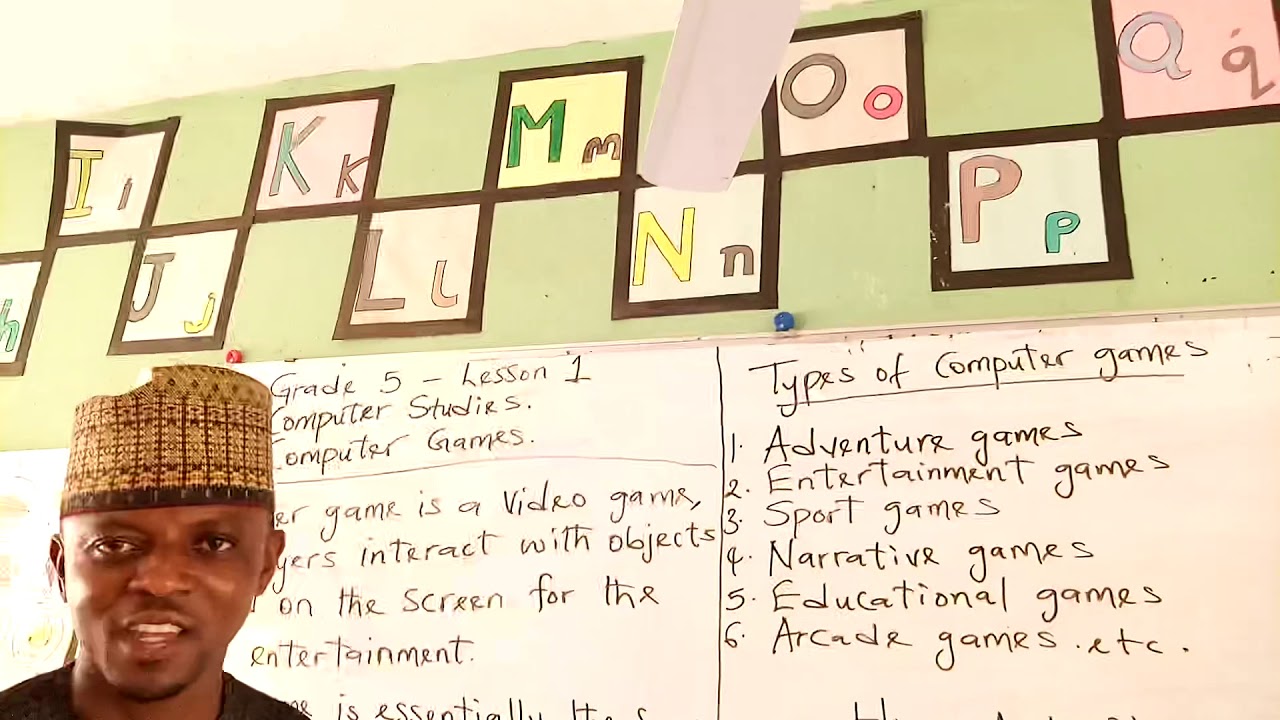 I i
K k
M m
O o
Q q
h
J j
L l
N n
P p
Grade 5 - Lesson 1
Computer Studies.
Computer Games.
er game is a video game,
yers interact with objects
on the screen for the
entertainment.
is essentially
Types of Computer games
1. Adventure games
2. Entertainment games
3. Sport games
4. Narrative games
5. Educational games
6. Arcade games. etc.